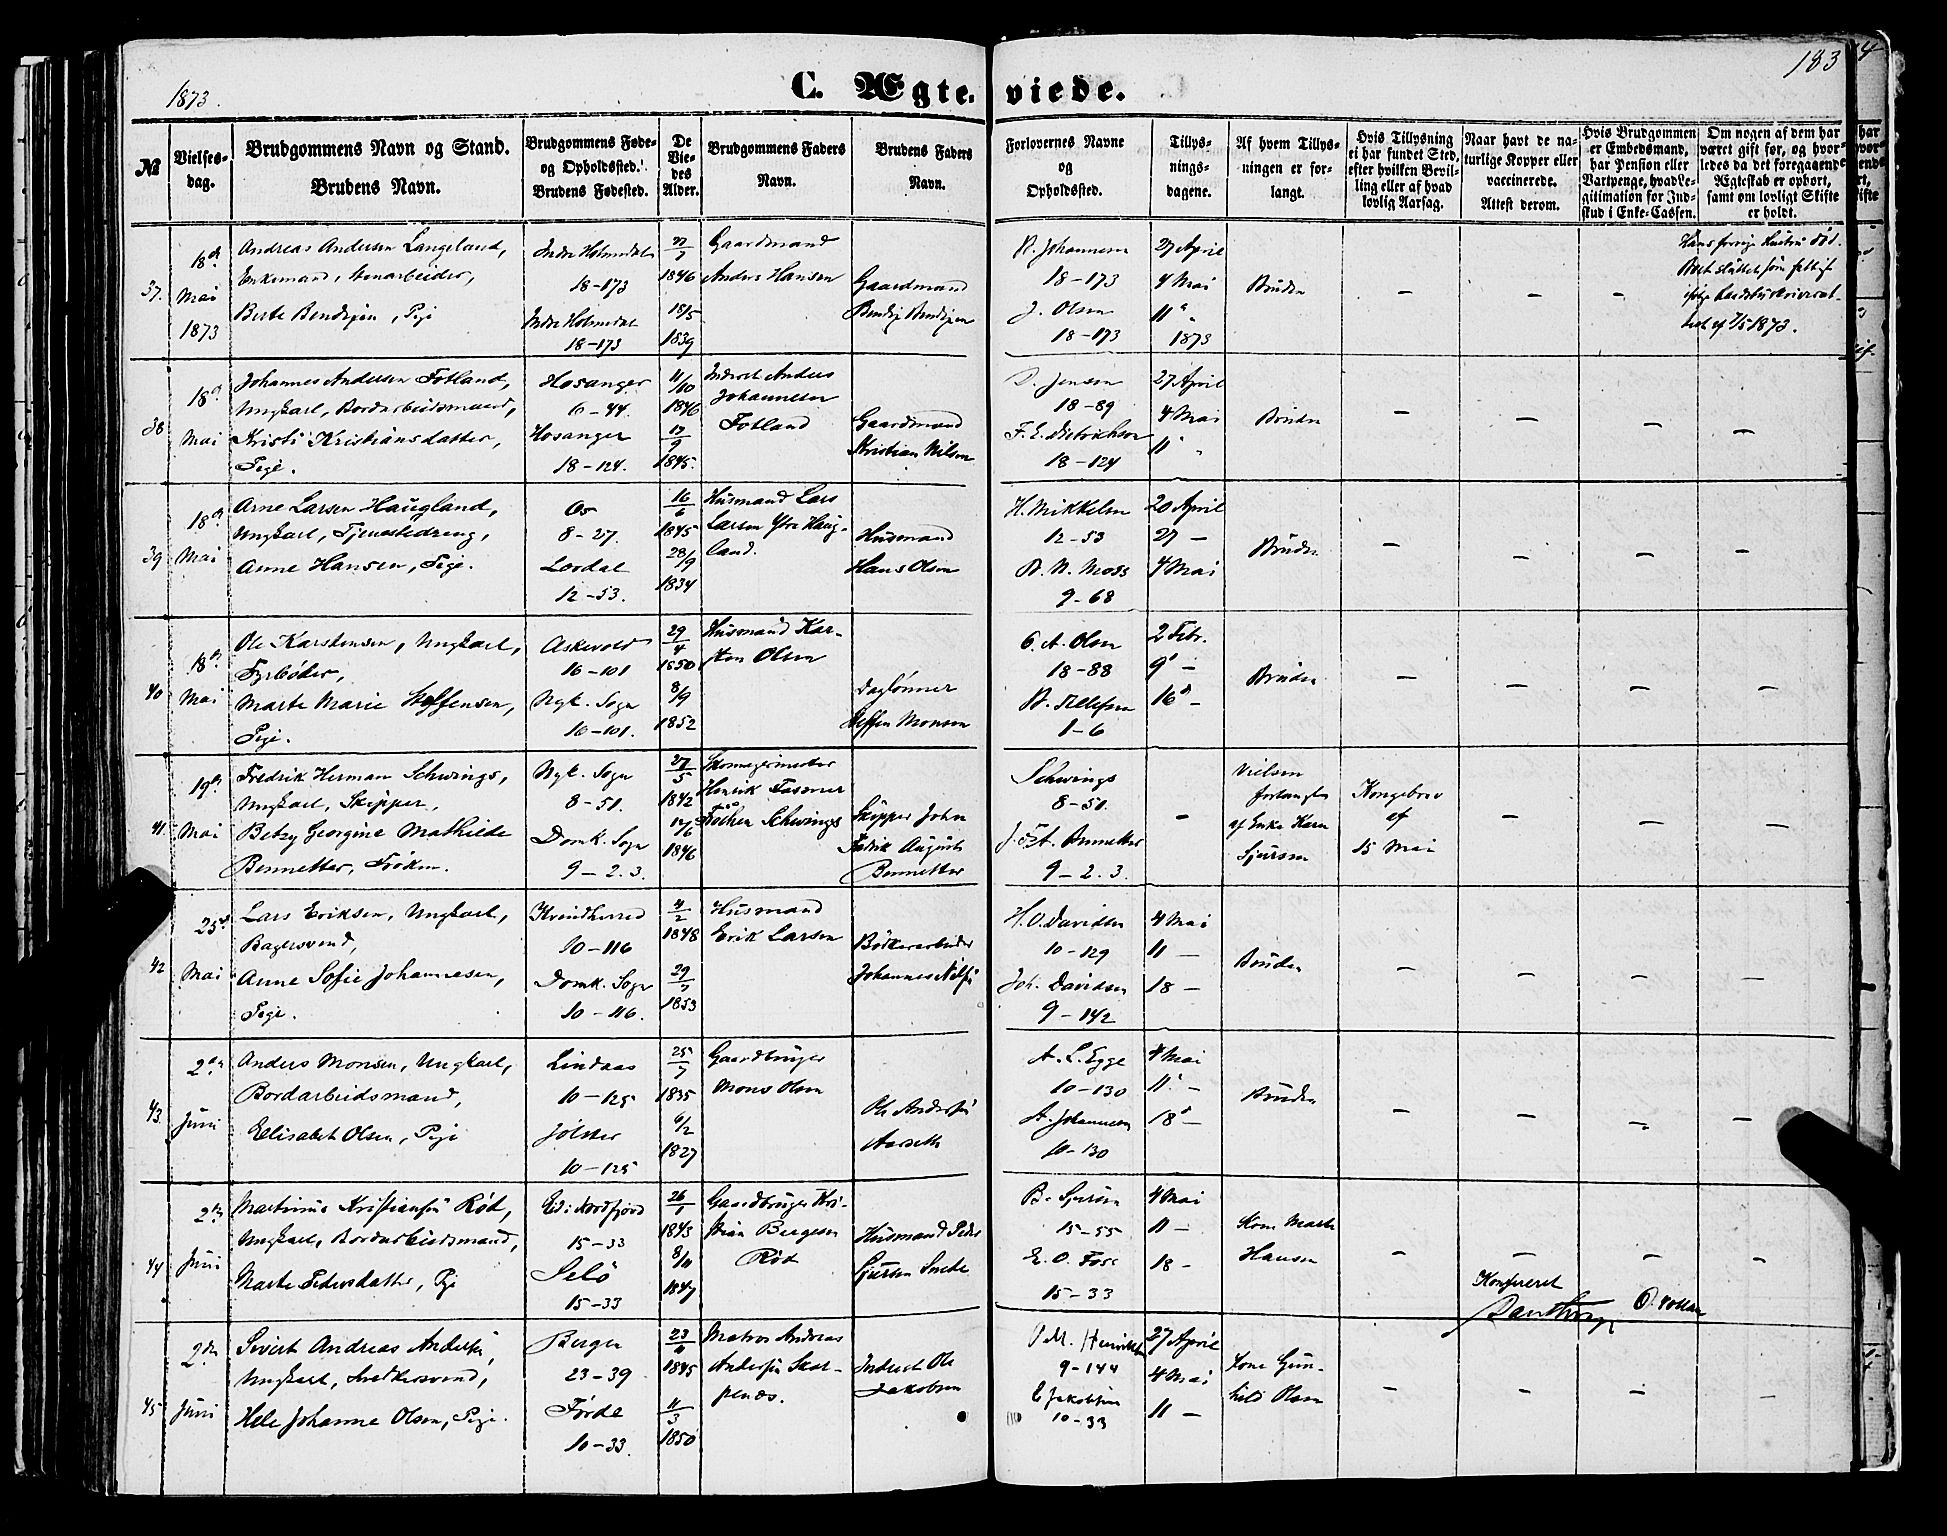 1873.
C. Ægte-viede.
183
№
Vielses-dag.
Brudgommens Navn og Stand.
Brudens Navn.
Brudgommens Føde- og Opholdssted.
Brudens Fødested.
De Viedes Alder.
Brudgommens Faders Navn.
Brudens Faders Navn.
Forlovernes Navne og Opholdssted.
Tillysningsdagene.
Af hvem Tillysningen er forlangt.
Hvis Tillysning ei har fundet Sted, efter hvilken Bevilling eller af hvad lovlig Aarsag.
Naar havt de naturlige Kopper eller vaccinerede.
Attest derom.
Hvis Brudgommen er Embedsmand, har Pension eller Vartpenge, hvad Legitimation for Indskud i Enke-Cassen.
Om nogen af dem har været gift før, og hvorledes da det foregaaende Ægteskab er ophørt, samt om lovligt Skifte er holdt.
37.
18de Mai 1873
Andreas Andersen Langeland,
Enkemand, Stenarbeider,
Berte Bendixsen, Pige
Indre Holmedal
18-173
Indre Holmedal
18-173
1846
15/5
1839
Gaardmand
Anders Hansen
Gaardmand
18-173
J. Olsen
18-173
27 April
4 Mai
11
1873
Bruden
Hans forrige Hustru død.
1873.
38
18de Mai
Johannes Andersen Fotland,
Ungkarl, Bordarbeidsmand,
Kristi Kristiansdatter,
Pige.
Hosanger
6-44
Hosanger
18-124.
11/10
1846
17/9
1845.
Inderst Anders
Johannesen
Fotland
Gaardmand
Kristian Nilsen
Jensen
18-89
18-124
27 April
4 Mai
11
Bruden
39
18de Mai
Arne Larsen Haugland,
Ungkarl, Tjenestedreng,
Anne Hansen, Pige.
Os
8-27.
12-53.
16/6
1845
28/9
1834
Husmand Lars
Larsen Ytre Haug-
land.
Husmand
Hans Olsen
H. Mikkelsen
12-53
9-68
20 April
27 —
4 Mai
Bruden
40
18de Mai
Ole Karstensen, Ungkarl,
Fyrbøder,
Marte Marie Steffensen,
Pige.
Askevold
16-101
Nyk. Sogn
16-101.
29/4
1850
8/9
1852
Husmand Kar-
sten Olsen
Daglønner
Steffen Monsen
O. A. Olsen
18-88
1-6
2 Febr.
9 —
16 —
Bruden
41.
19de Mai
Fredrik Herman Schwings,
Ungkarl, Skipper,
Betzy Georgine Mathilde
Bennetter, Frøken.
Nyk. Sogn
8-51.
Domk. Sogn
9-2.3.
27/5
1842
17/6
1846
Skomagermester
Henrik Fasmer
Schwings
Skipper John
Fredrik August
Bennetter
Schwings
8-51.
9-2.3.
Vielsen
forlangt
af Enke Karn
Sjursen
Kongebrev
af
15 Mai
42
25de Mai
Lars Eriksen, Ungkarl,
Bagersvend,
Anne Sofie Johannesen,
Pige.
Kvindherred
10-116
Domk. Sogn
10-116.
4/2
1848
29/7
1853
Husmand
Erik Larsen
Bødkerarbeider
Johannes Nilsen
H. O. Davidsen
10-129
Joh. Davidsen
9-142
4 Mai
11 —
18 —
Bruden
43
2den Juni
Anders Monsen, Ungkarl,
Bordarbeidsmand,
Ellisabet Olsen, Pige
Lindaas
10-125
Jølster
10-125
25/7
1835
6/2
1827
Gaardbruger
Mons Olsen
Ole Andersen
Aarseth
A. L. Egge
10-130
A. Johannesen
10-130
4 Mai
11 —
18 —
Bruden
44
2den Juni
Martinus Kristiansen Rød,
Ungkarl, Bordarbeidsmand,
Marte Pedersdatter, Pige
Eid i Nordfjord
15-33
Selø
15-33
26/1
1843
8/11
1847
Gaardbruger Kri-
stian Børgesen
Rød
Husmand Peder
Sjursen
B. Sjursen
15-55
E. O. Fosse
15-33
4 Mai
11 —
18 —
Kone Marta
Hansen
Konfereret
45
2den Juni
Sivert Andreas Andersen,
Ungkarl, Snedkersvend,
Hele Johanne Olsen, Pige.
Bergen
23-39
Førde
10-33.
1845
11/3
1850
Matros Andreas
Andersen Skar-
penæs.
Inderst Ole
Jakobsen
9-144
10-33
27 April
4 Mai
11 —
Kone Gun-
hild Olsen